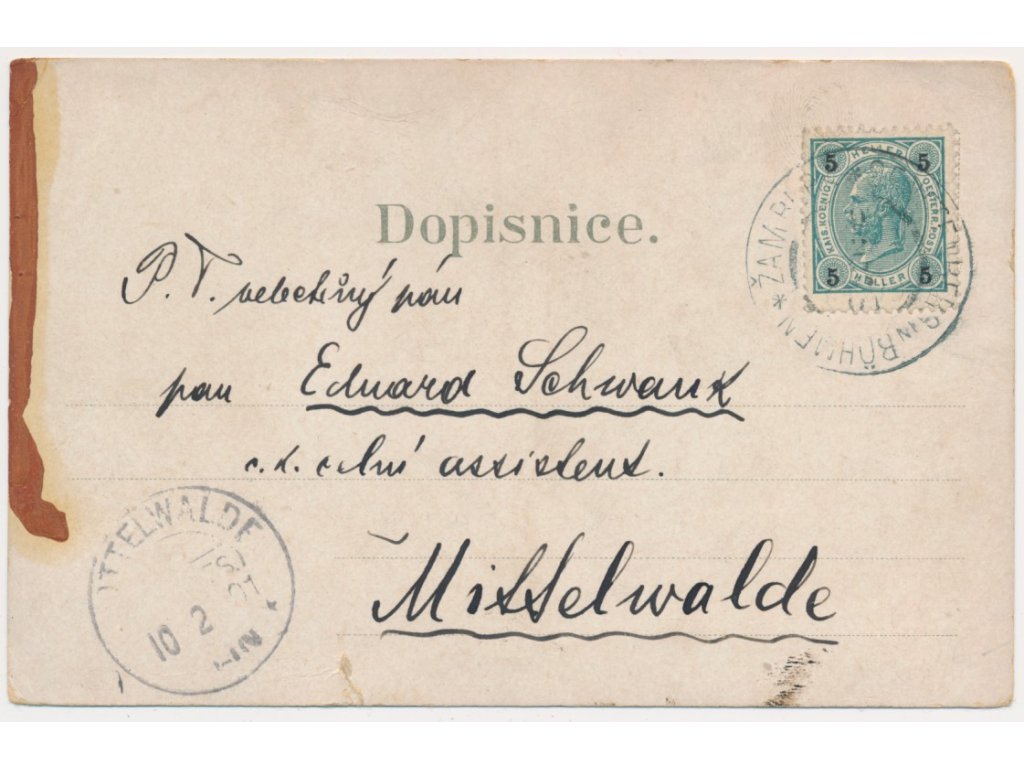 Dopisnice.
5 HELLER 5
KAIS. KOENIGL. OESTERR. POST
5 HELLER 5
ŽAMB BÖHMEN *
P. T. velectěný pán
pan Eduard Schwank
c. k. celní assistent.
Mittelwalde
ITTELWALDE
10 2